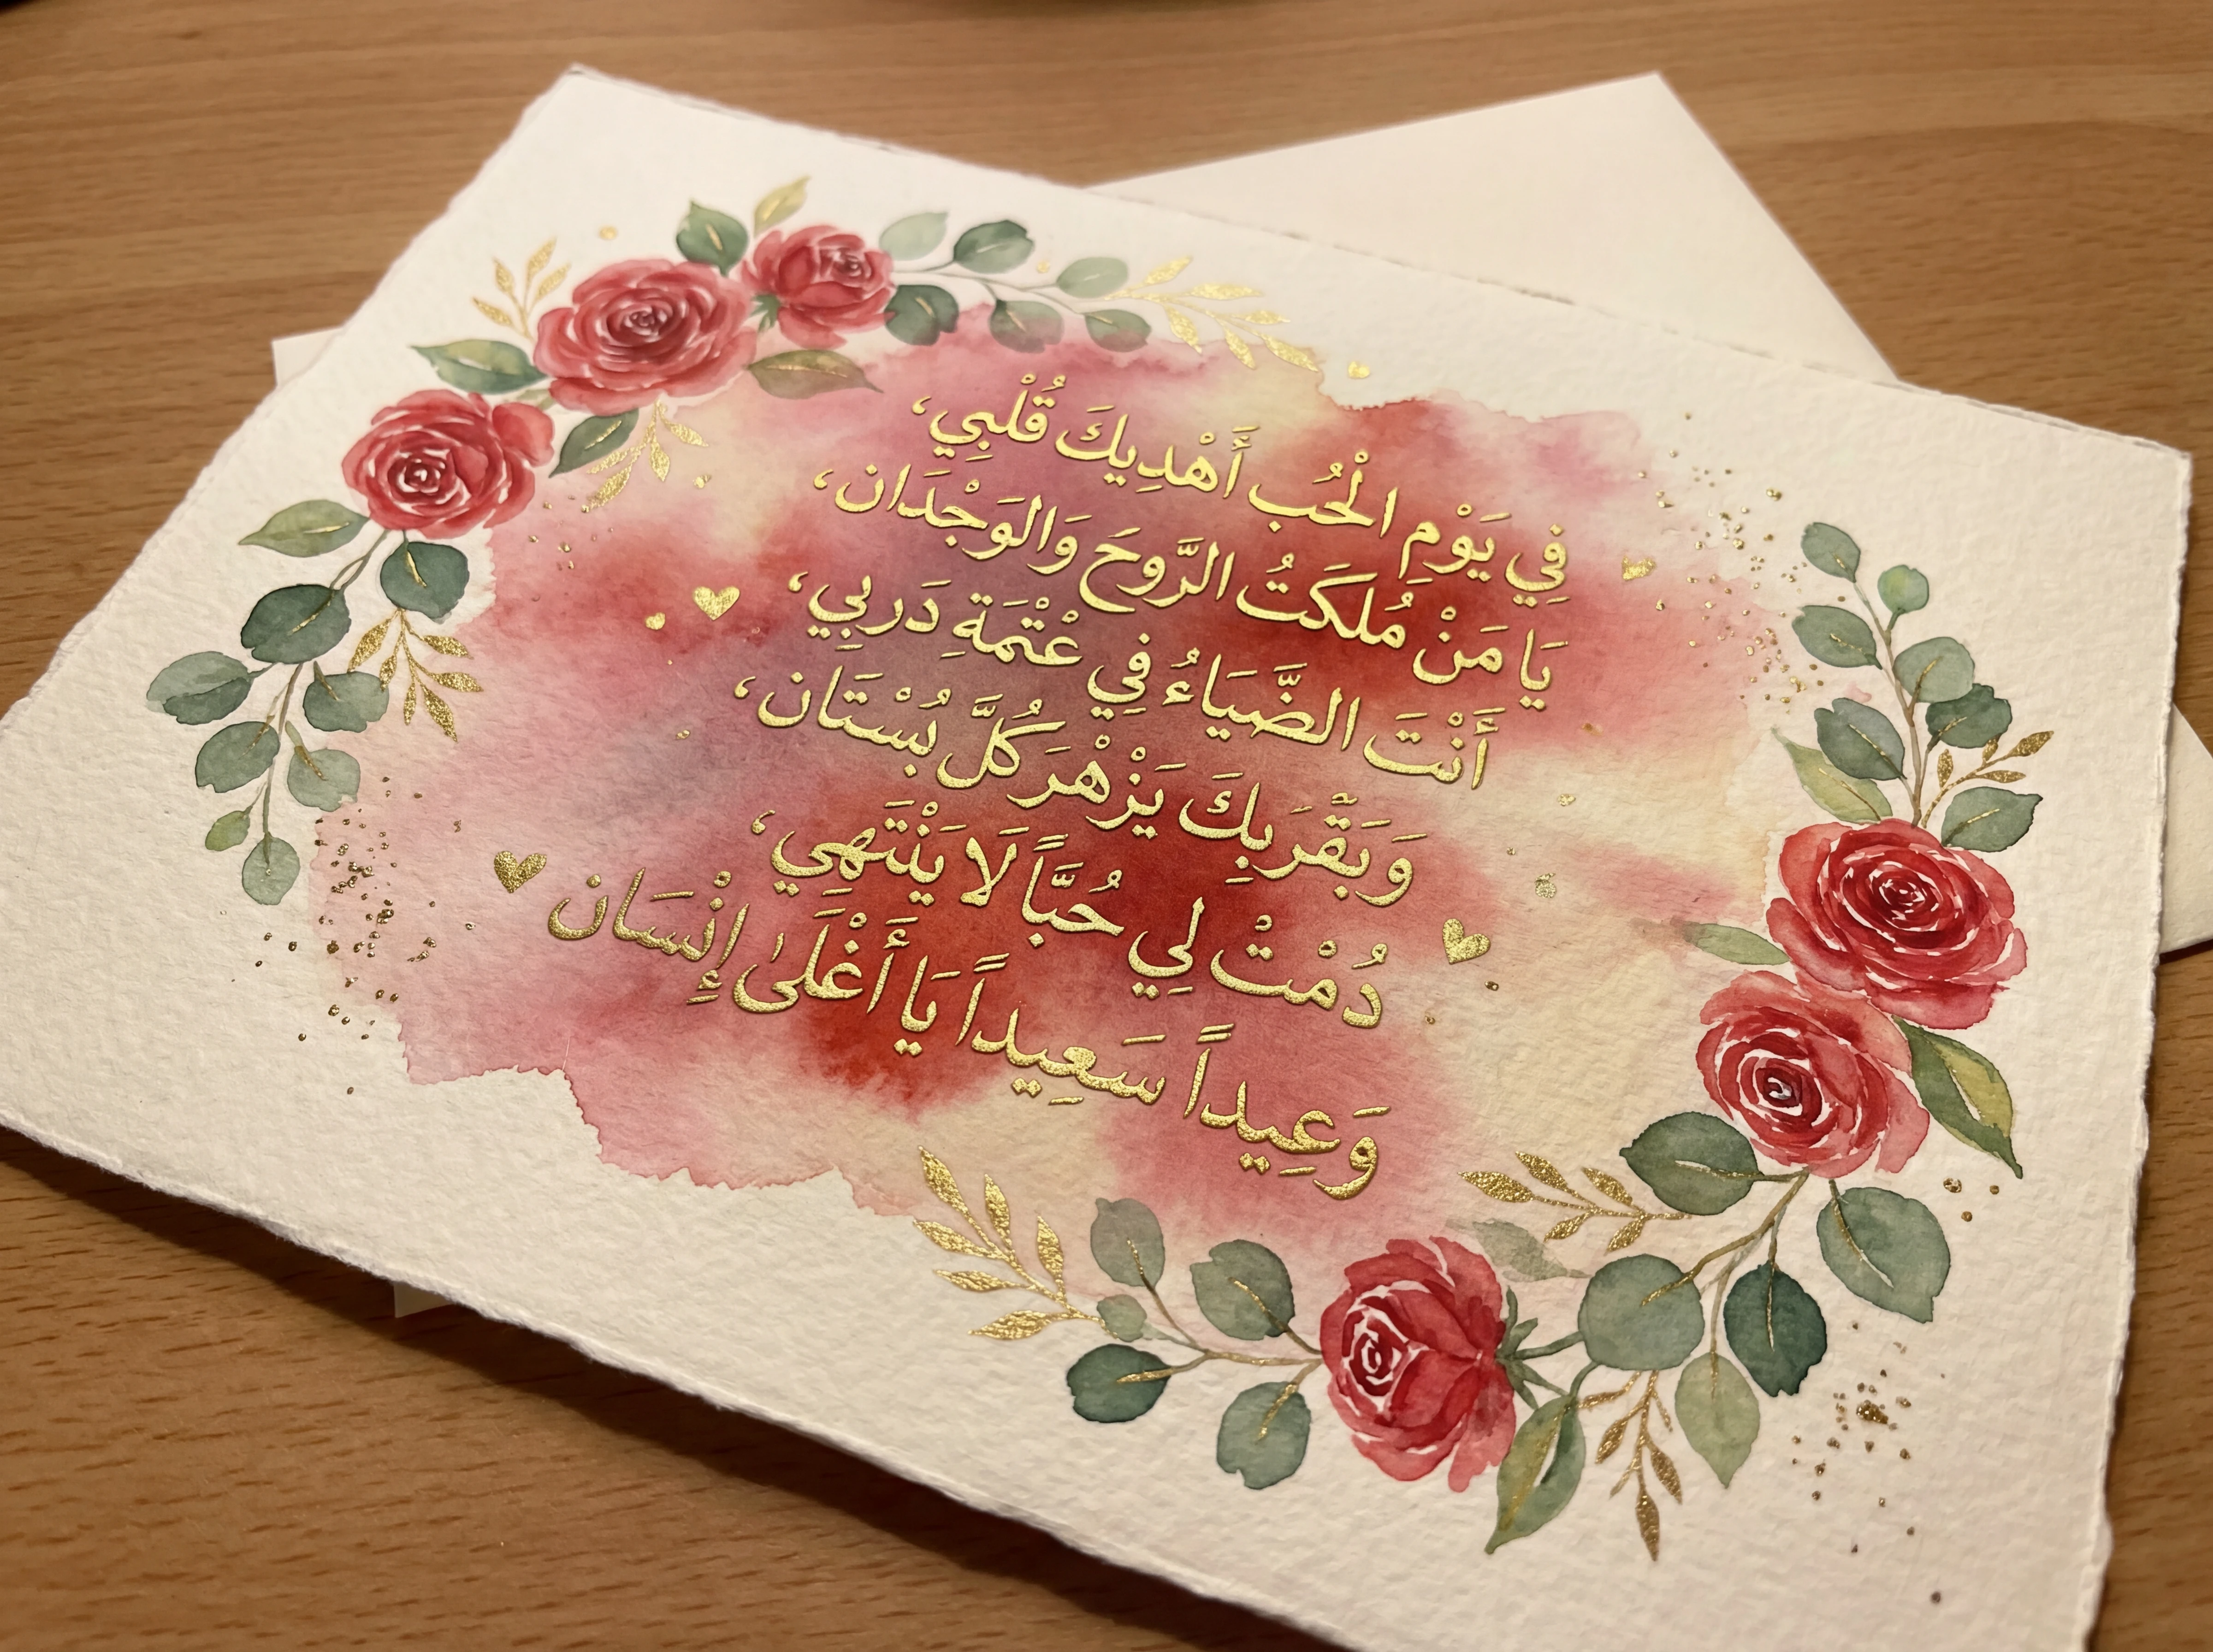 فِي يَوْمِ الْحُب أَهْدِيكَ قُلْبِي،
يَا مَنْ مُلكَتُ الرَّوحَ وَالوَجْدَان،
أَنْتَ الضَّيَاءُ فِي عْتْمَةِ دَربِي،
وَبَقْرَبِكَ يَزْهْرَ كُلَّ بُسْتَان،
دُمْتْ لِي حُبَّاً لَا يَنْتَهِي،
وَعِيداً سَعِيداً يَا أَغْلَىٰ إِنْسَان